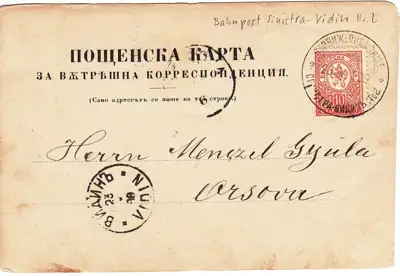 Bahnpost Sinistra-Vidin Nr. 2
ПОЩЕНСКА КАРТА
ЗА ВѪТРѢШНА КОРРЕСПОНДЕНЦИЯ.
(Само адрессътъ се пише на тѫзъ страна)
10
Herrn Menczel Gyula
Orsova
ВИДИНЪ * VIDIN *
23